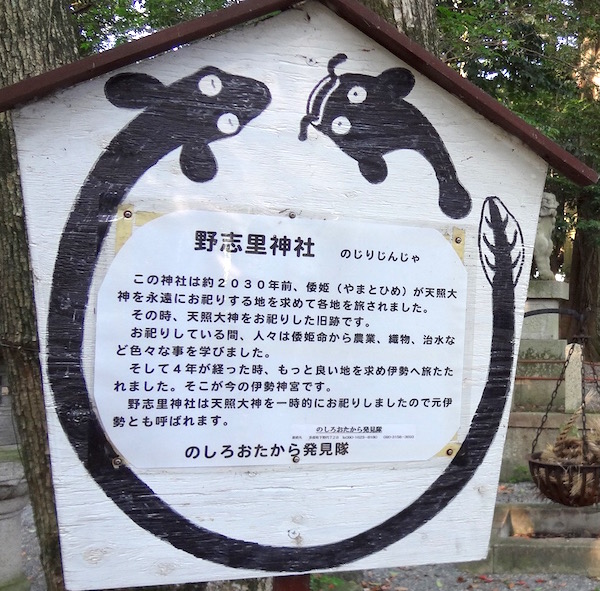 野志里神社　のじりじんじゃ
この神社は約２０３０年前、倭姫（やまとひめ）が天照大
神を永遠にお祀りする地を求めて各地を旅されました。
その時、天照大神をお祀りした旧跡です。
お祀りしている間、人々は倭姫命から農業、織物、治水な
ど色々な事を学びました。
そして４年が経った時、もっと良い地を求め伊勢へ旅たた
れました。そこが今の伊勢神宮です。
野志里神社は天照大神を一時的にお祀りしましたので元伊
勢とも呼ばれます。
のしろおたから発見隊
のしろおたから発見隊